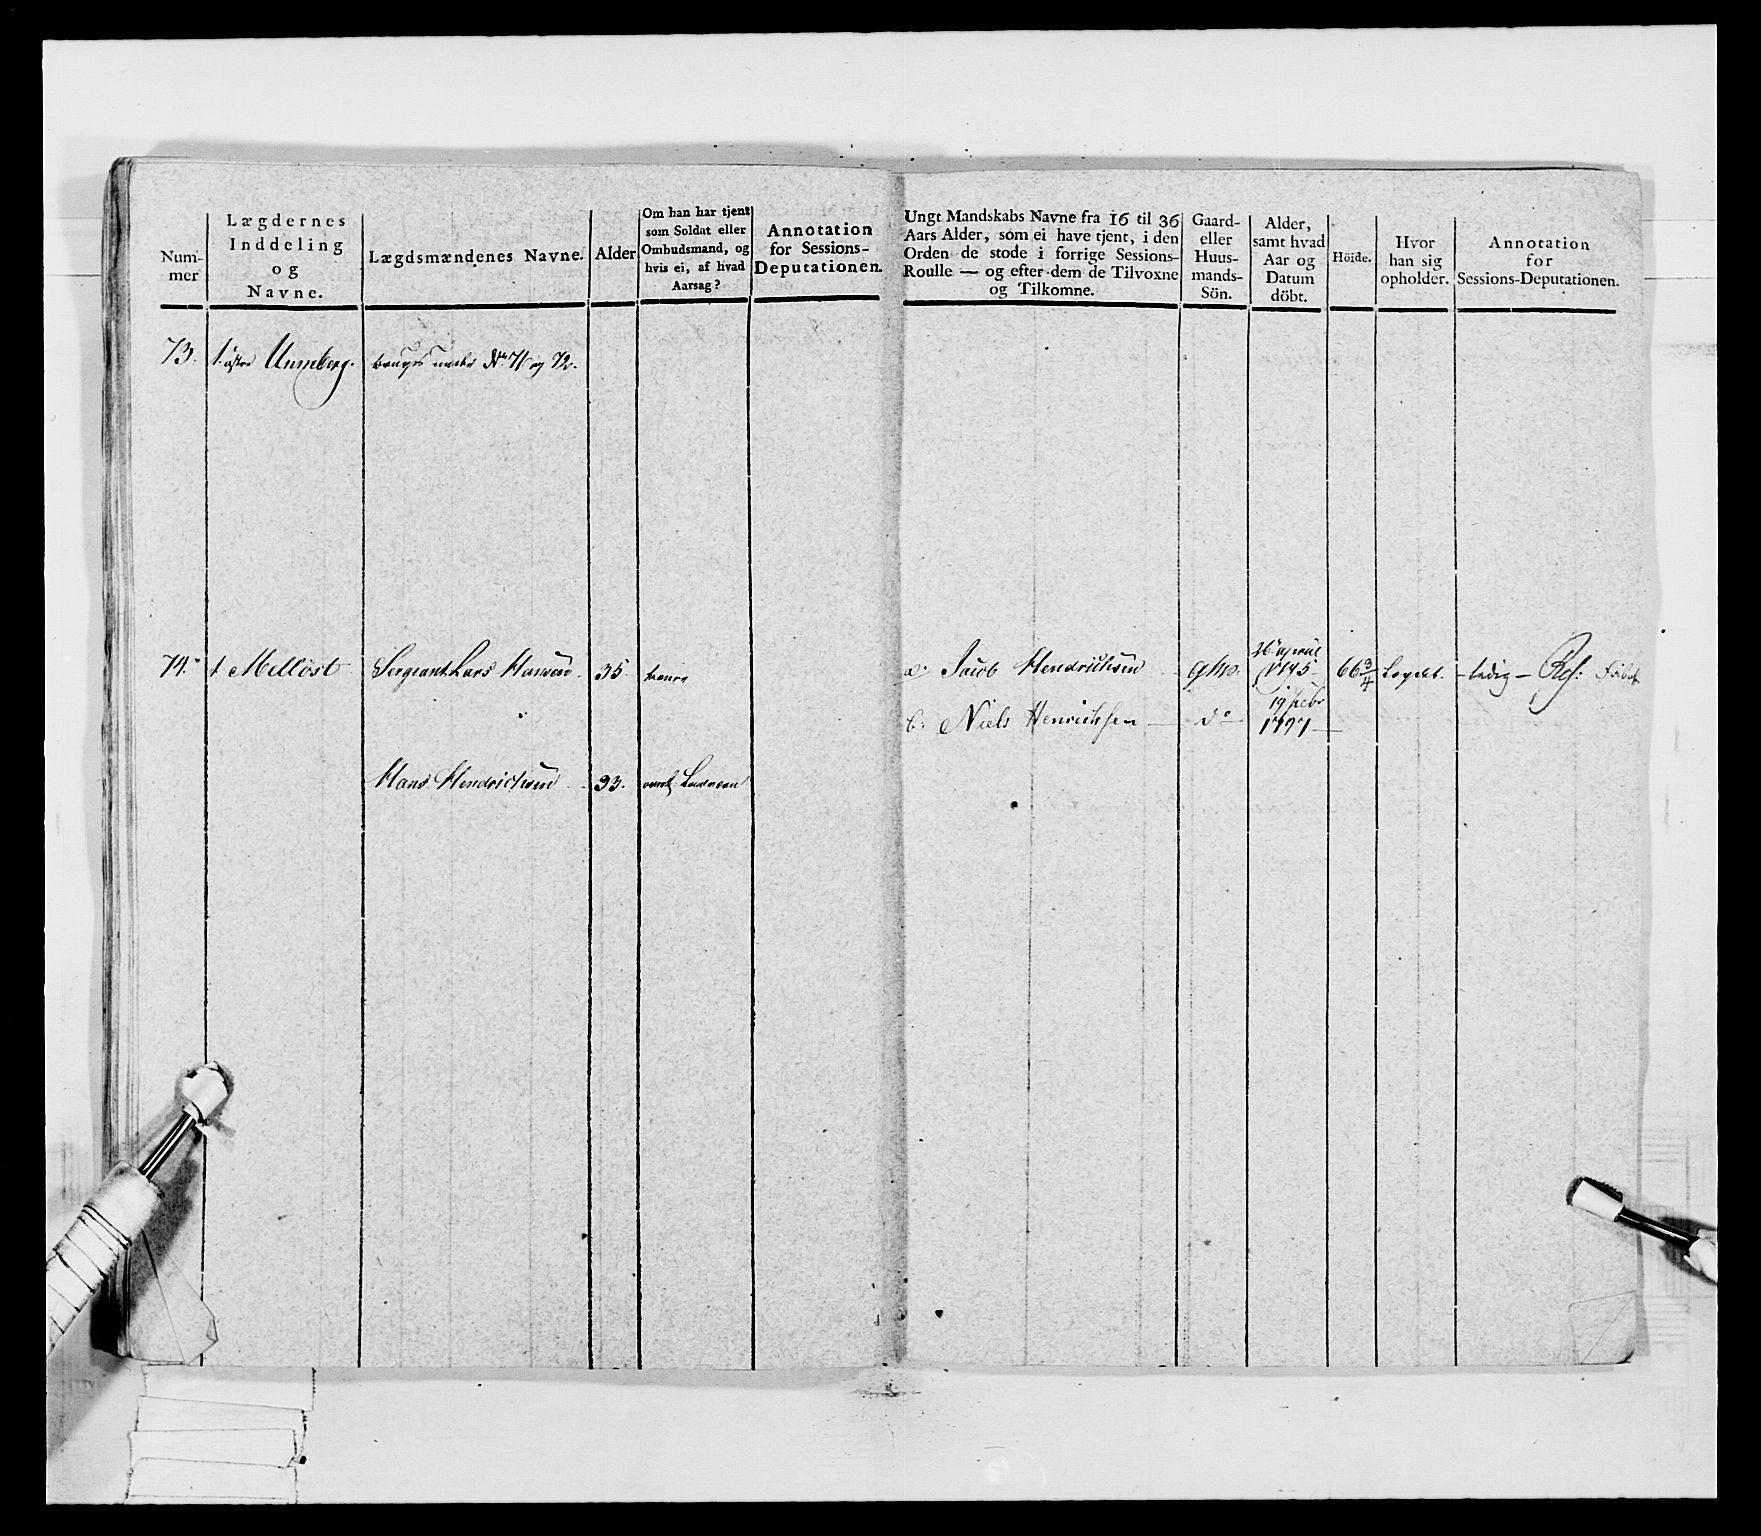 Num-
mer
Lægdernes
Inddeling
og
Navne.
Lægdsmændenes Navne.
Alder
Om han har tjent
som Soldat eller
Ombudsmand, og
hvis ei, af hvad
Aarsag?
Annotation
for Sessions-
Deputationen.
Ungt Mandskabs Navne fra 16 til 36
Aars Alder, som ei have tjent, i den
Orden de stode i forrige Sessions-
Roulle — og efter dem de Tilvoxne
og Tilkomne.
Gaard-
eller
Huus-
mands-
Sön.
Alder,
samt hvad
Aar og
Datum
döbt.
Höide.
Hvor
han sig
opholder.
Annotation
for
Sessions-Deputationen.
73. 1. östre Unneberg. bruges under No 71 og 72.
74. 1 Melløst Sergeant Lars Hansen 35
a. Jacob Hendrichsen 26 april 66 3/4 Lægdet. - ledig -
b. Niels Henrichsen — do 19 febr 1797 —
Hans Hendrichsen 33.